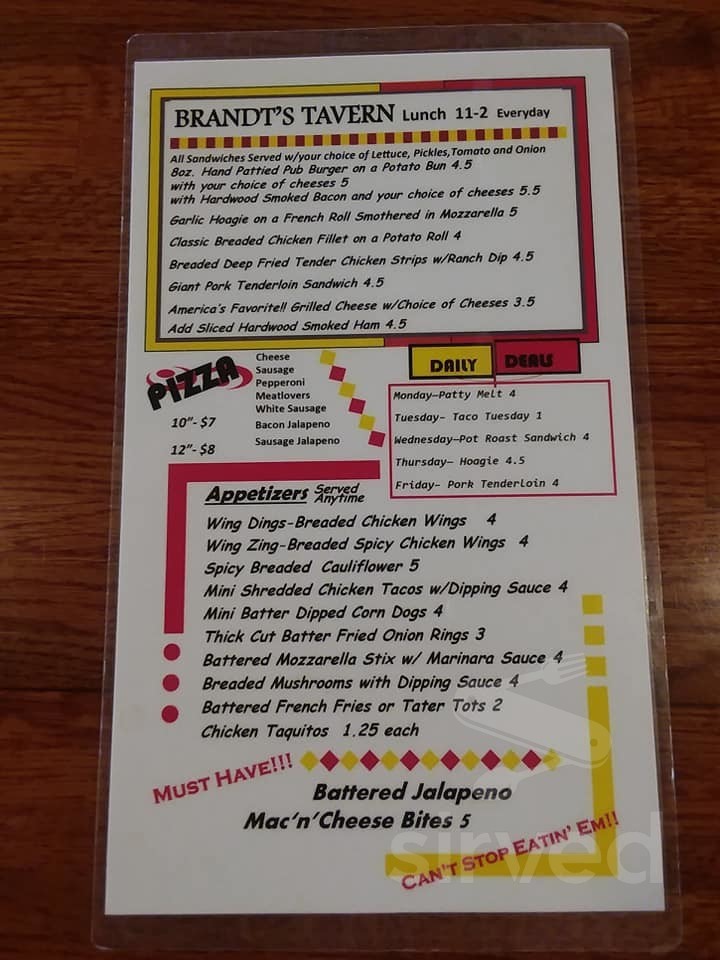 BRANDT'S TAVERN Lunch 11-2 Everyday
All Sandwiches Served w/your choice of Lettuce, Pickles,Tomato and Onion
8oz. Hand Pattied Pub Burger on a Potato Bun 4.5
with your choice of cheeses 5
with Hardwood Smoked Bacon and your choice of cheeses 5.5
Garlic Hoagie on a French Roll Smothered in Mozzarella 5
Classic Breaded Chicken Fillet on a Potato Roll 4
Breaded Deep Fried Tender Chicken Strips w/Ranch Dip 4.5
Giant Pork Tenderloin Sandwich 4.5
America's Favorite!! Grilled Cheese w/Choice of Cheeses 3.5
Add Sliced Hardwood Smoked Ham 4.5
PIZZA
10"- $7
12"- $8
Cheese
Sausage
Pepperoni
Meatlovers
White Sausage
Bacon Jalapeno
Sausage Jalapeno
DAILY DEALS
Monday—Patty Melt 4
Tuesday- Taco Tuesday 1
Wednesday—Pot Roast Sandwich 4
Thursday— Hoagie 4.5
Friday- Pork Tenderloin 4
Appetizers Served Anytime
Wing Dings-Breaded Chicken Wings 4
Wing Zing-Breaded Spicy Chicken Wings 4
Spicy Breaded Cauliflower 5
Mini Shredded Chicken Tacos w/Dipping Sauce 4
Mini Batter Dipped Corn Dogs 4
Thick Cut Batter Fried Onion Rings 3
Battered Mozzarella Stix w/ Marinara Sauce 4
Breaded Mushrooms with Dipping Sauce 4
Battered French Fries or Tater Tots 2
Chicken Taquitos 1.25 each
MUST HAVE!!!
Battered Jalapeno
Mac'n'Cheese Bites 5
CAN'T STOP EATIN' EM!!
sirved